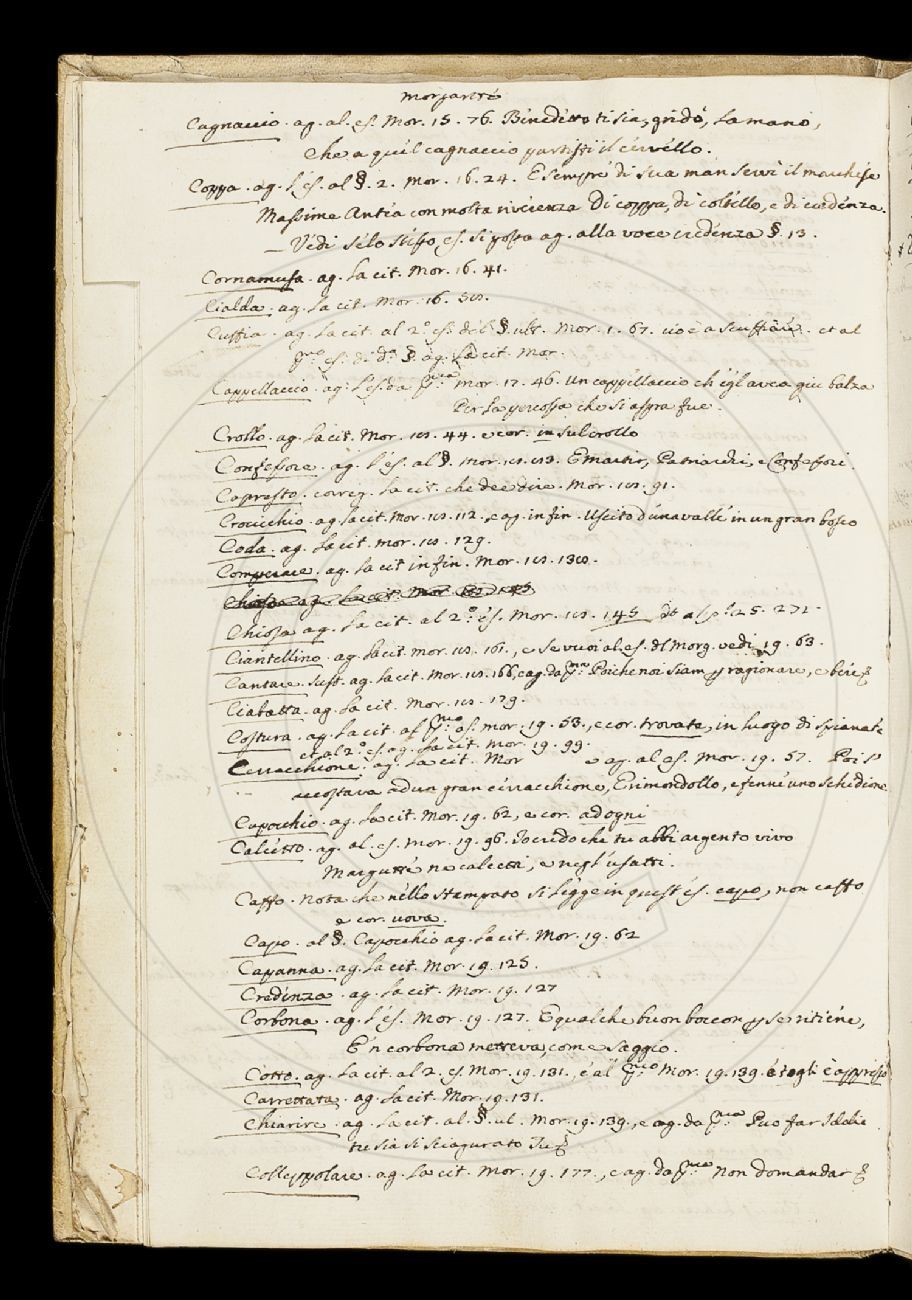 Morgante
Cagnaccio. ag. al. es. Mor. 15. 76. Benedetto ti sia, gridò, la mano,
Che a quel cagnaccio partisti il cervello.
Coppa. ag. l'es. al §. 2. Mor. 16. 24. E sempre di sua man servì il marchese
Massime Antea con molta riverenza Di coppa, di coltello, e di credenza.
— Vedi se lo stesso es. si possa ag. alla voce credenza §. 13.
Cornamusa. ag. la cit. Mor. 16. 41.
Cialda. ag. la cit. Mor. 16.
Cuffia. ag. la cit. al 2.º es. del §. ult. Mor. 1. 67. cioè a scuffiare. et al
es. di d.º §. ag. la cit. Mor.
Cappellaccio. ag. l'es. da Mor. 17. 46. Un cappellaccio ch'egl'avea giù balza
Per la percossa che sì aspra fue.
Crollo. ag. la cit. Mor. 18. 44. e cor. in sul crollo
Confessore. ag. l'es. al §. Mor. E martir, Patriarchi, e Confessori.
Capresto. correg. la cit. che dee dire. Mor. 18. 91.
Crocicchio. ag. la cit. Mor. 18. 112. e ag. in fin. Uscito d'una valle in un gran bosco
Coda. ag. la cit. Mor. 18. 129.
Comperare. ag. la cit in fin. Mor. 18. 130.
Chiosa ag. la cit. Mor. 18. 145
Chiosa ag. la cit. al 2.º es. Mor. 18. 145 25. 272.
Ciantellino. ag. la cit. Mor. 18. 161., e se vuoi al. es. del Morg. vedi 19. 63.
Cantare. sust. ag. la cit. Mor. 18. 166, e ag. da Poiche noi siam per ragionare, e bere
Ciabatta. ag. la cit. Mor. 18. 179.
Costura. ag. la cit. al es. Mor. 19. 53., e cor. trovata, in luogo di spianate
et al 2.º es. ag. la cit. Mor. 19. 99.
Cerracchione. ag. la cit. Mor e ag. al es. Mor. 19. 57. Poi s'
accostava ad un gran cerracchione, E rimondollo, e fenne uno schidione
Capocchio. ag. la cit. Mor. 19. 62, e cor. ad ogni
Calcetto. ag. al. es. Mor. 19. 96. Io credo che tu abbi argento vivo
Margutte ne' calcetti, e negl'usatti.
Caffo. Nota che nello stampato si legge in quest'es. capo, non caffo
e cor. uova.
Capo. al §. Capocchio ag. la cit. Mor. 19. 62
Capanna. ag. la cit. Mor. 19. 125.
Credenza. ag. la cit. Mor. 19. 127
Corbona. ag. l'es. Mor. 19. 127. E qualche buon boccon per se ritiene,
E'n corbona metteva, come saggio.
Cotto. ag. la cit. al 2. es. Mor. 19. 131., e al Mor. 19. 139. e togli è appresso
Carrettata. ag. la cit. Mor. 19. 131.
Chiarire. ag. la cit. al §. ul. Mor. 19. 139., e ag. da Puo far Iddio
tu sia sì sciagurato
Colleppolare. ag. la cit. Mor. 19. 177., e ag. da non domandar